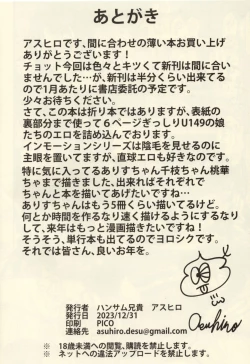 あとがき
アスヒロです、間に合わせの薄い本お買い上げ
ありがとうございます！
チョット今回は色々とキツくて新刊は間に合い
ませんでした…が、新刊は半分くらい出来てる
ので1月あたりに書店委託の予定です。
少々お待ちください。
さて、この本は折り本ではありますが、表紙の
裏部分まで使って6ページぎっしりU149の娘
たちのエロを詰め込んでおります。
インモーションシリーズは陰毛を見せるのに
主眼を置いてますが、直球エロも好きなのです。
特に気に入ってるありすちゃん千枝ちゃん桃華
ちゃまで描きました、出来ればそれぞれで
ちゃんと本を描いてあげたいですね…
ありすちゃんはもう5冊くらい描いてるけど。
何とか時間を作るなり速く描けるようにするなり
して、来年はもっと漫画描きたいですね！
そうそう、単行本も出てるのでヨロシクです。
それでは皆さん、良いお年を。
発行者 ハンサム兄貴 アスヒロ
発行日 2023/12/31
印刷 PICO
連絡先 asuhiro.desu@gmail.com
Asuhiro
※ 18歳未満への閲覧、購読を禁止します。
※ ネットへの違法アップロードを禁止します。